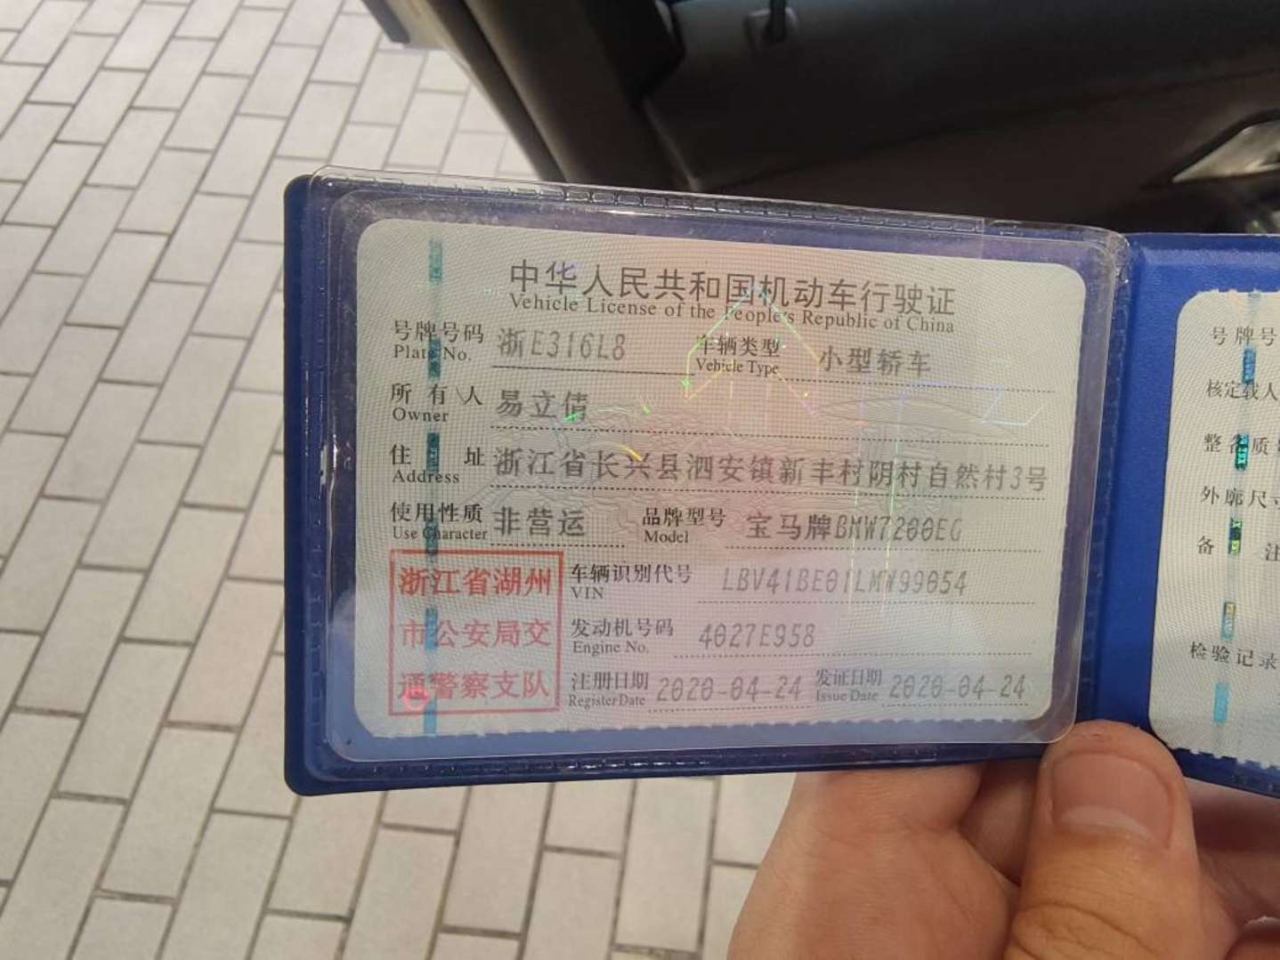 中华人民共和国机动车行驶证
Vehicle License of the People's Republic of China
号牌号码 浙E316L8 车辆类型 小型轿车
Plate No. Vehicle Type
所有人 易立倩
Owner
住址 浙江省长兴县泗安镇新丰村阴村自然村3号
Address
使用性质 非营运 品牌型号 宝马牌BMW7200EG
Use Character Model
浙江省湖州
市公安局交
通警察支队
车辆识别代号 LBV41BE01LMW99054
VIN
发动机号码 4027E958
Engine No.
注册日期 2020-04-24 发证日期 2020-04-24
Register Date Issue Date
号牌号
核定载人
整备质
外廓尺寸
备 注
检验记录